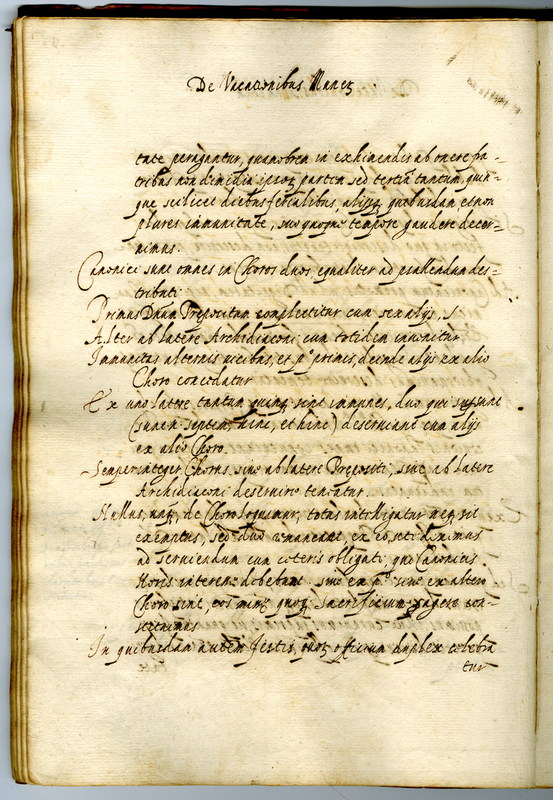 De Vacationibus Manet
tate peragantur, quamobrem in eximendis ab onere fra-
tribus non dimidia ipsoꝝ partem sed tertia tantum, quin-
que scilicet diebus ferialibus, alijsq; quibusdam et non
plures immunitate, suo quoque tempore gaudere decer-
nimus.
Canonici sunt omnes in Choros duos, equaliter ad psallendum des-
tributi
Primus Dnum Prepositum complectitur cum sex alijs,
Alter ab latere Archidiaconi cum totidem inuenitur
Immunitas alternis uicibus, et pº primis, deinde alijs ex alio
Choro concedatur
Ex uno latere tantum quinq; sint immunes, duo qui supsunt
(sunt n. septem hinc, et hinc) deseruiant cum alijs
ex alio Choro.
Semper integer Chorus, siue ab latere Prepositi, siue ab latere
Archidiaconi deseruire teneatur.
Nullus, naq; de Choro loquimur, totus intelligatur neq; sit
exemptus, sed duo remaneant, ex eo, ut diximus
ad seruiendum cum ceteris obligati, qui Canonicis
Horis interesse debebant. siue ex pº siue ex altero
Choro sint, eos
quoq; sacrificium
con-
stituimus
In quibusdam autem festis, quoꝝ officium duplex celebra
tur